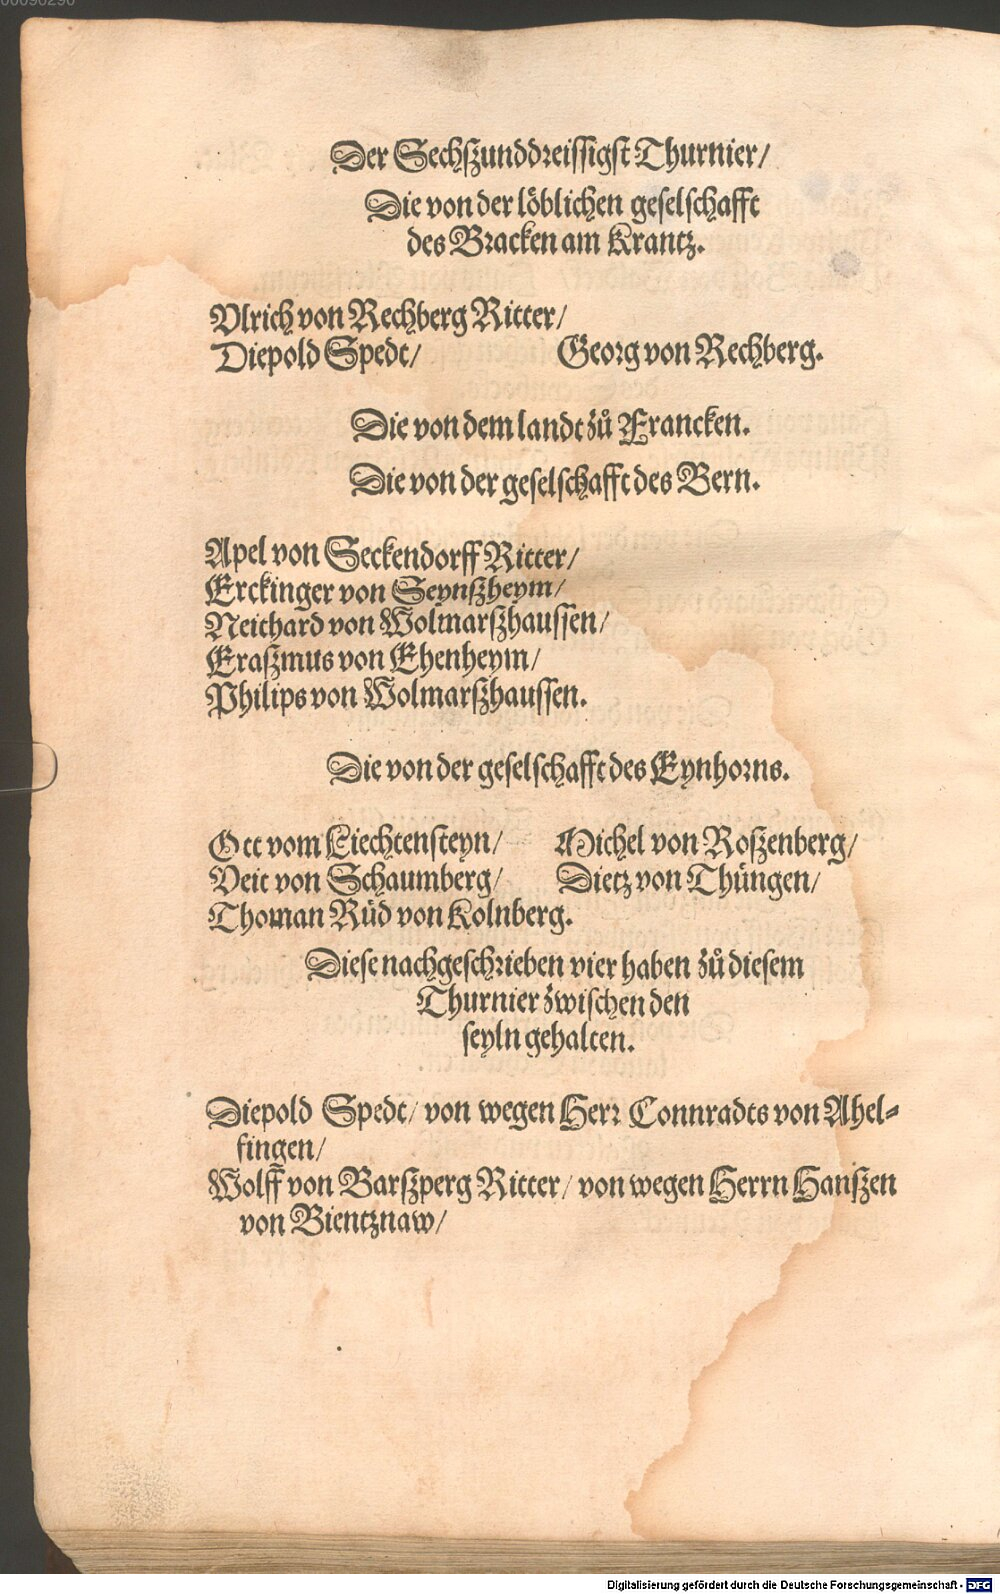 Der Sechſzunddreiſſigſt Thurnier/
Die von der löblichen geſelſchafft
des Bracken am Krantz.
Vlrich von Rechberg Ritter/
Diepold Spedt/ Georg von Rechberg.
Die von dem landt zů Francken.
Die von der geſelſchafft des Bern.
Apel von Seckendorff Ritter/
Erckinger von Seynſzheym/
Neithard von Wolmarſzhauſſen/
Eraſzmus von Ehenheym/
Philips von Wolmarſzhauſſen.
Die von der geſelſchafft des Eynhorns.
Ott vom Liechtenſteyn/ Michel von Roſzenberg/
Veit von Schaumberg/ Dietz von Thüngen/
Thoman Rüd von Kolnberg.
Dieſe nachgeſchrieben vier haben zů dieſem
Thurnier zwiſchen den
ſeyln gehalten.
Diepold Spedt/ von wegen Herr Connradts von Ahel-
fingen/
Wolff von Barſzperg Ritter/ von wegen Herrn Hanſzen
von Bientznaw/
Digitalisierung gefördert durch die Deutsche Forschungsgemeinschaft - DFG